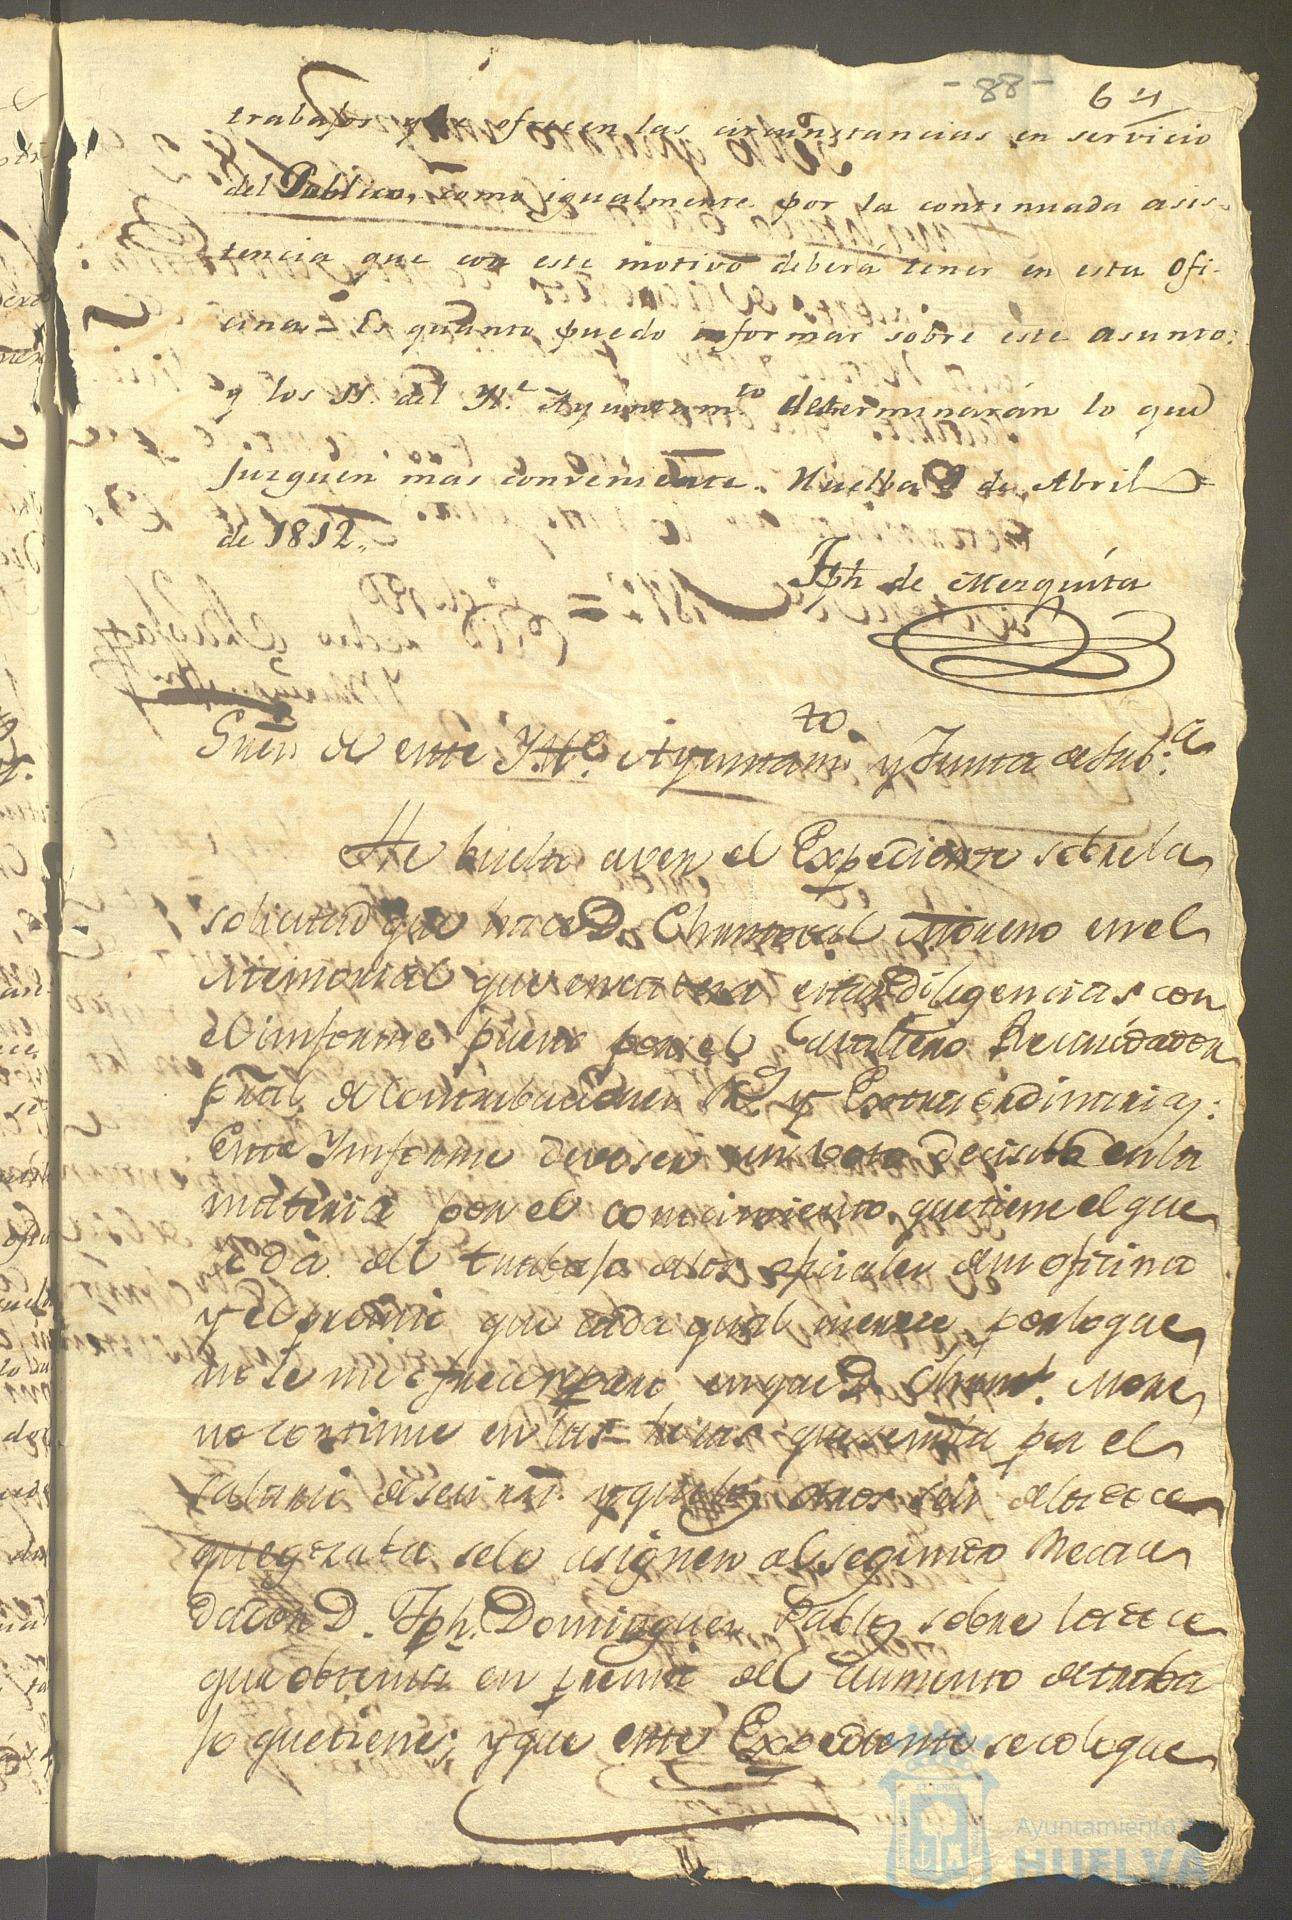 -88-
64
trabajos q.e le ofrecen las circunstancias en servicio
del Publico, como igualmente por la continuada asis-
tencia que con este motivo debera tener en esta Ofi-
cina = Es quanto puedo informar sobre este asunto:
y los SS. del Y.e Ayuntam.to determinarán lo que
juzguen mas conveniente. Huelba 9 de Abril
de 1812.,
Jph de Mezquita
S.res de este Y.tte Ayuntam.to y Junta de Sub.a
He buelto aver el Expediente sobrela
solicitud que hace D. Christoval Moreno en el
Memorial que encabeza estas diligencias con
el informe puesto por el Cavallero Recaudador
pral. de Contribuciones y Extraordinarias:
Este Ynforme deve ser un voto decisibo enla
materia por el conocimiento quetiene el que
lo dá del trabajo delos oficiales desu oficina
y el premio que cada qual merece por loque
no se me ofrece reparo enque D. Christ. More
no continue en las que sirvela por el
salario deseis rr.s y que los otros seis delos doce
quegozaba selo asignen al segundo Recau
dador D. Jph. Dominguez Pablos sobre los doce
que obtenia en premio del aumento detraba
jo quetiene; y que este Expediente secoloque
Ayuntamiento de
HUELVA